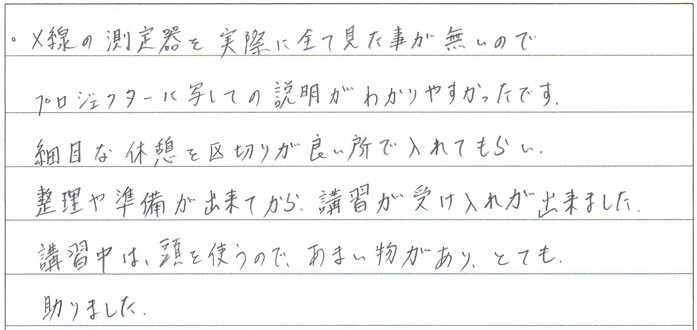 ・X線の測定器を実際に全て見た事が無いので
プロジェクターに写しての説明がわかりやすかったです.
細目な休憩を区切りが良い所で入れてもらい.
整理や準備が出来てから、講習が受け入れが出来ました.
講習中は、頭を使うので、あまい物があり、とても.
助りました.